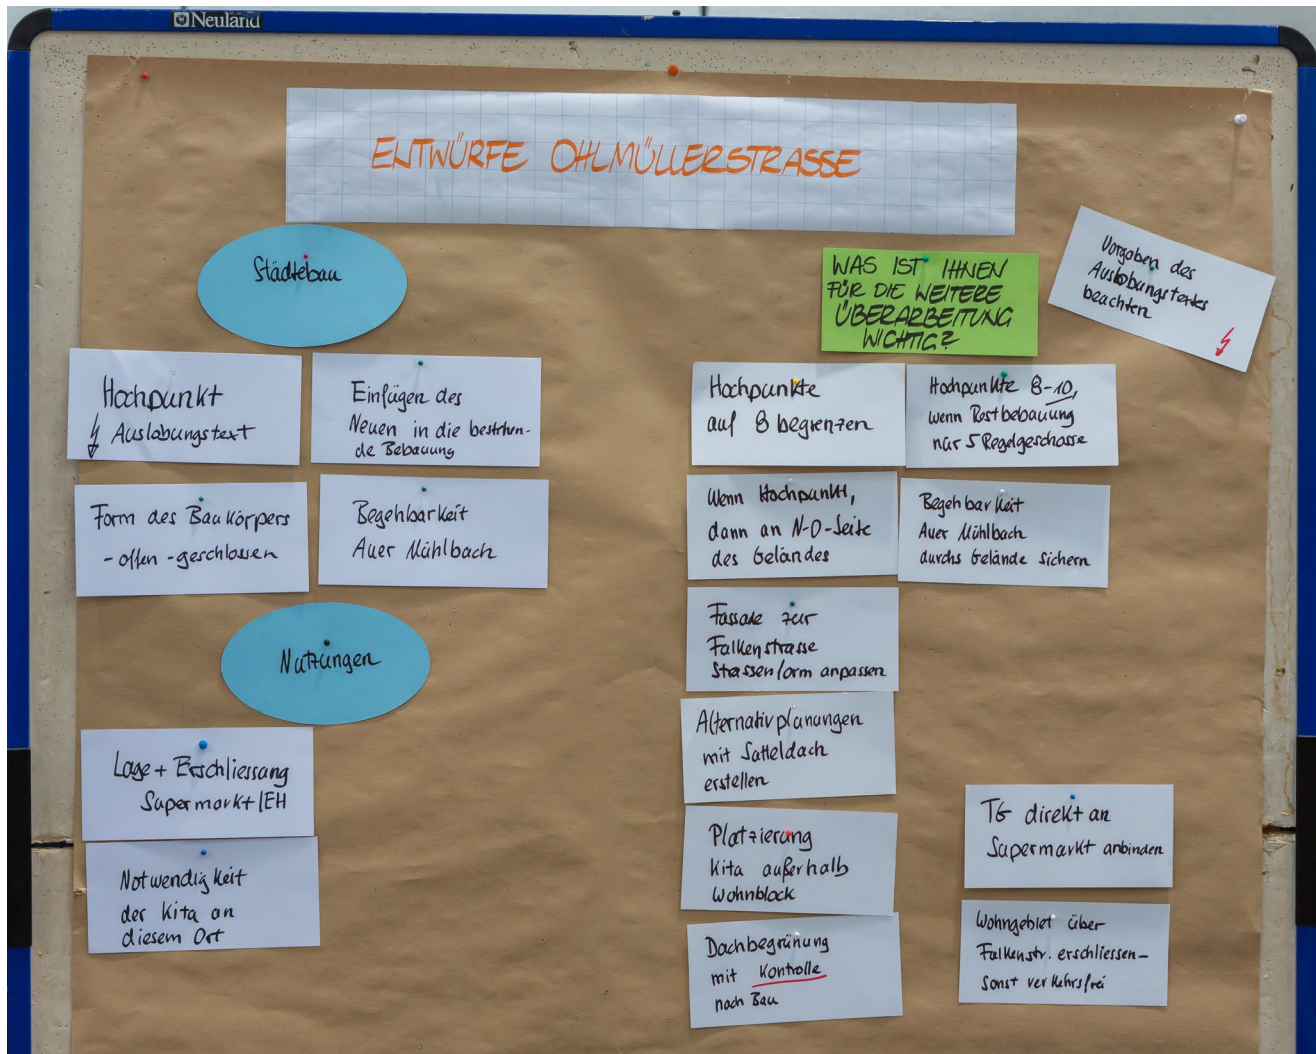 Neuland
ENTWÜRFE OHLMÜLLERSTRASSE
Städtebau
Hochpunkt
Auslobungstext
Einfügen des
Neuen in die bestehen-
de Bebauung
Form des Baukörpers
- offen - geschlossen
Begehbarkeit
Auer Mühlbach
Nutzungen
Lage + Erschliessung
Supermarkt/EH
Notwendigkeit
der Kita an
diesem Ort
WAS IST IHNEN
FÜR DIE WEITERE
ÜBERARBEITUNG
WICHTIG?
Vorgaben des
Auslobungstextes
beachten
Hochpunkte
auf 8 begrenzen
Hochpunkte 8-10,
wenn Restbebauung
nur 5 Regelgeschosse
Wenn Hochpunkt,
dann an N-O-Seite
des Geländes
Begehbarkeit
Auer Mühlbach
durchs Gelände sichern
Fassade zur
Falkenstrasse
Strassenform anpassen
Alternativplanungen
mit Satteldach
erstellen
Platzierung
Kita außerhalb
Wohnblock
Dachbegrünung
mit Kontrolle
nach Bau
TG direkt an
Supermarkt anbinden
Wohngebiet über
Falkenstr. erschliessen-
sonst verkehrsfrei